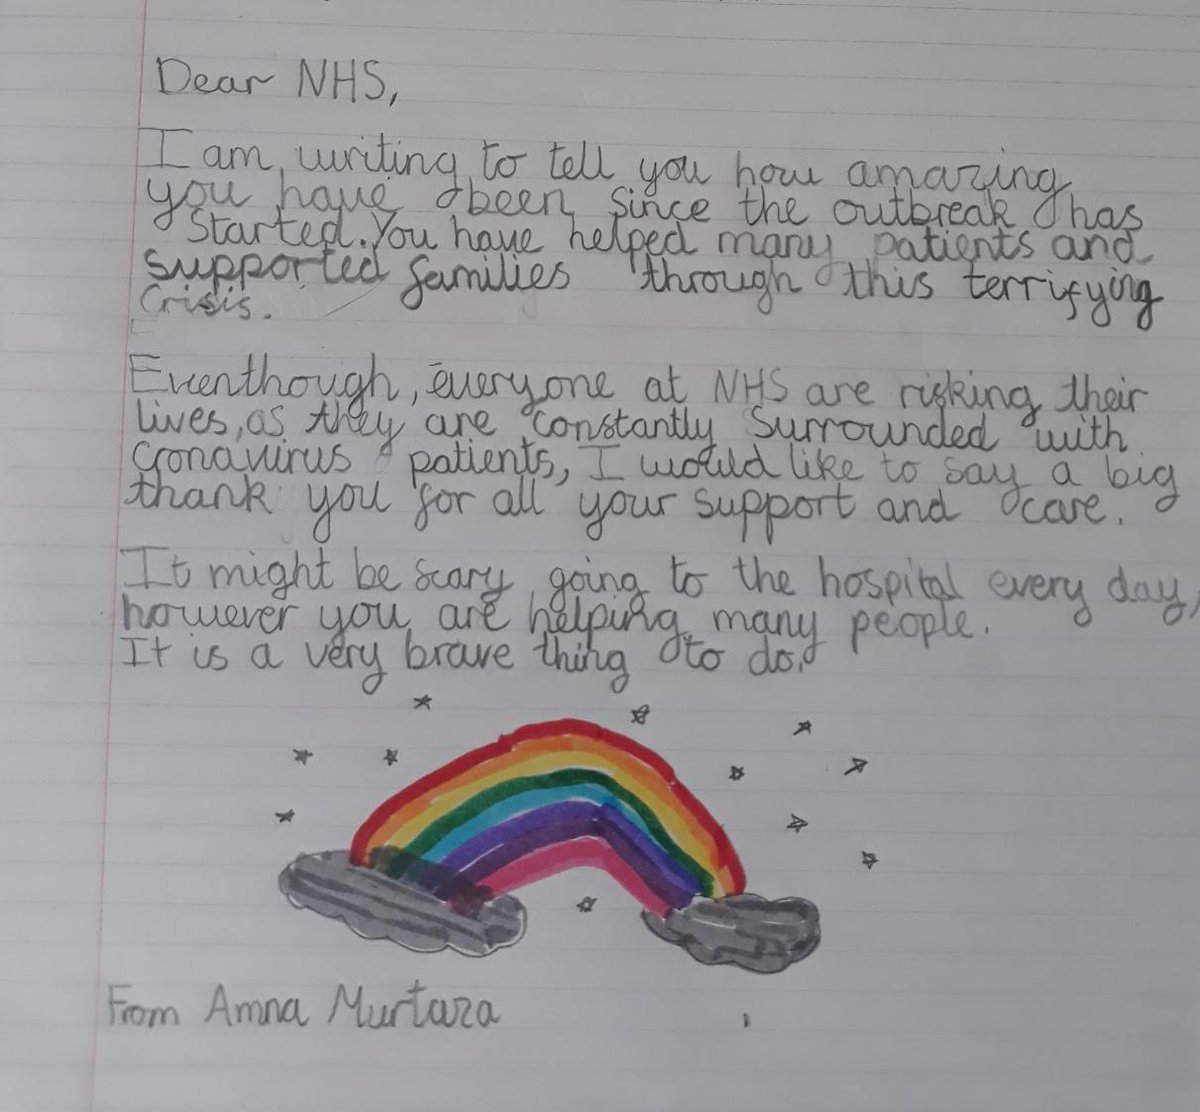 Dear NHS,
I am writing to tell you how amazing
you have been since the outbreak has
started. You have helped many patients and
supported families through this terrifying
crisis.
Eventhough, everyone at NHS are risking their
lives, as they are constantly surrounded with
cronavirus patients, I would like to say a big
thank you for all your support and care.
It might be scary going to the hospital every day,
however you are helping many people.
It is a very brave thing to do.
From Amna Murtaza